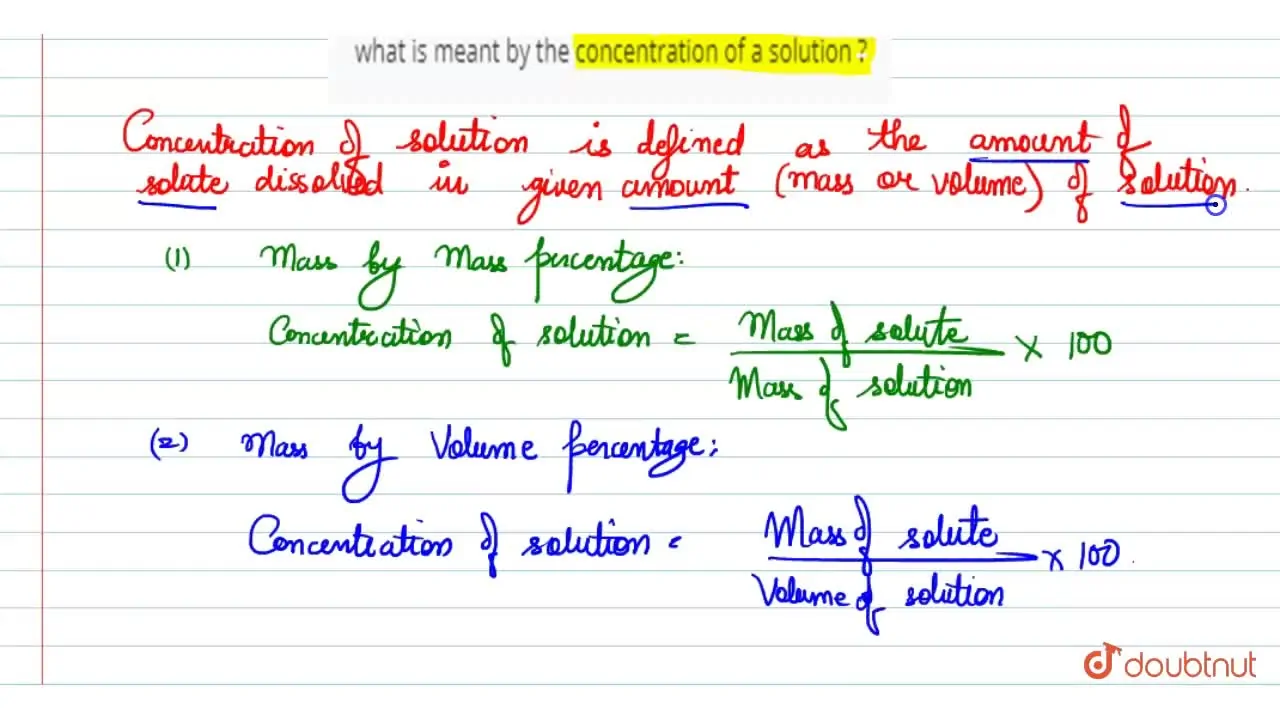 what is meant by the concentration of a solution ?
Concentration of solution is defined as the amount of
solute dissolved in given amount (mass or volume) of solution.
(1) Mass by Mass percentage:
Concentration of solution = Mass of solute × 100
Mass of solution
(2) Mass by Volume percentage:
Concentration of solution = Mass of solute × 100
Volume of solution
doubtnut